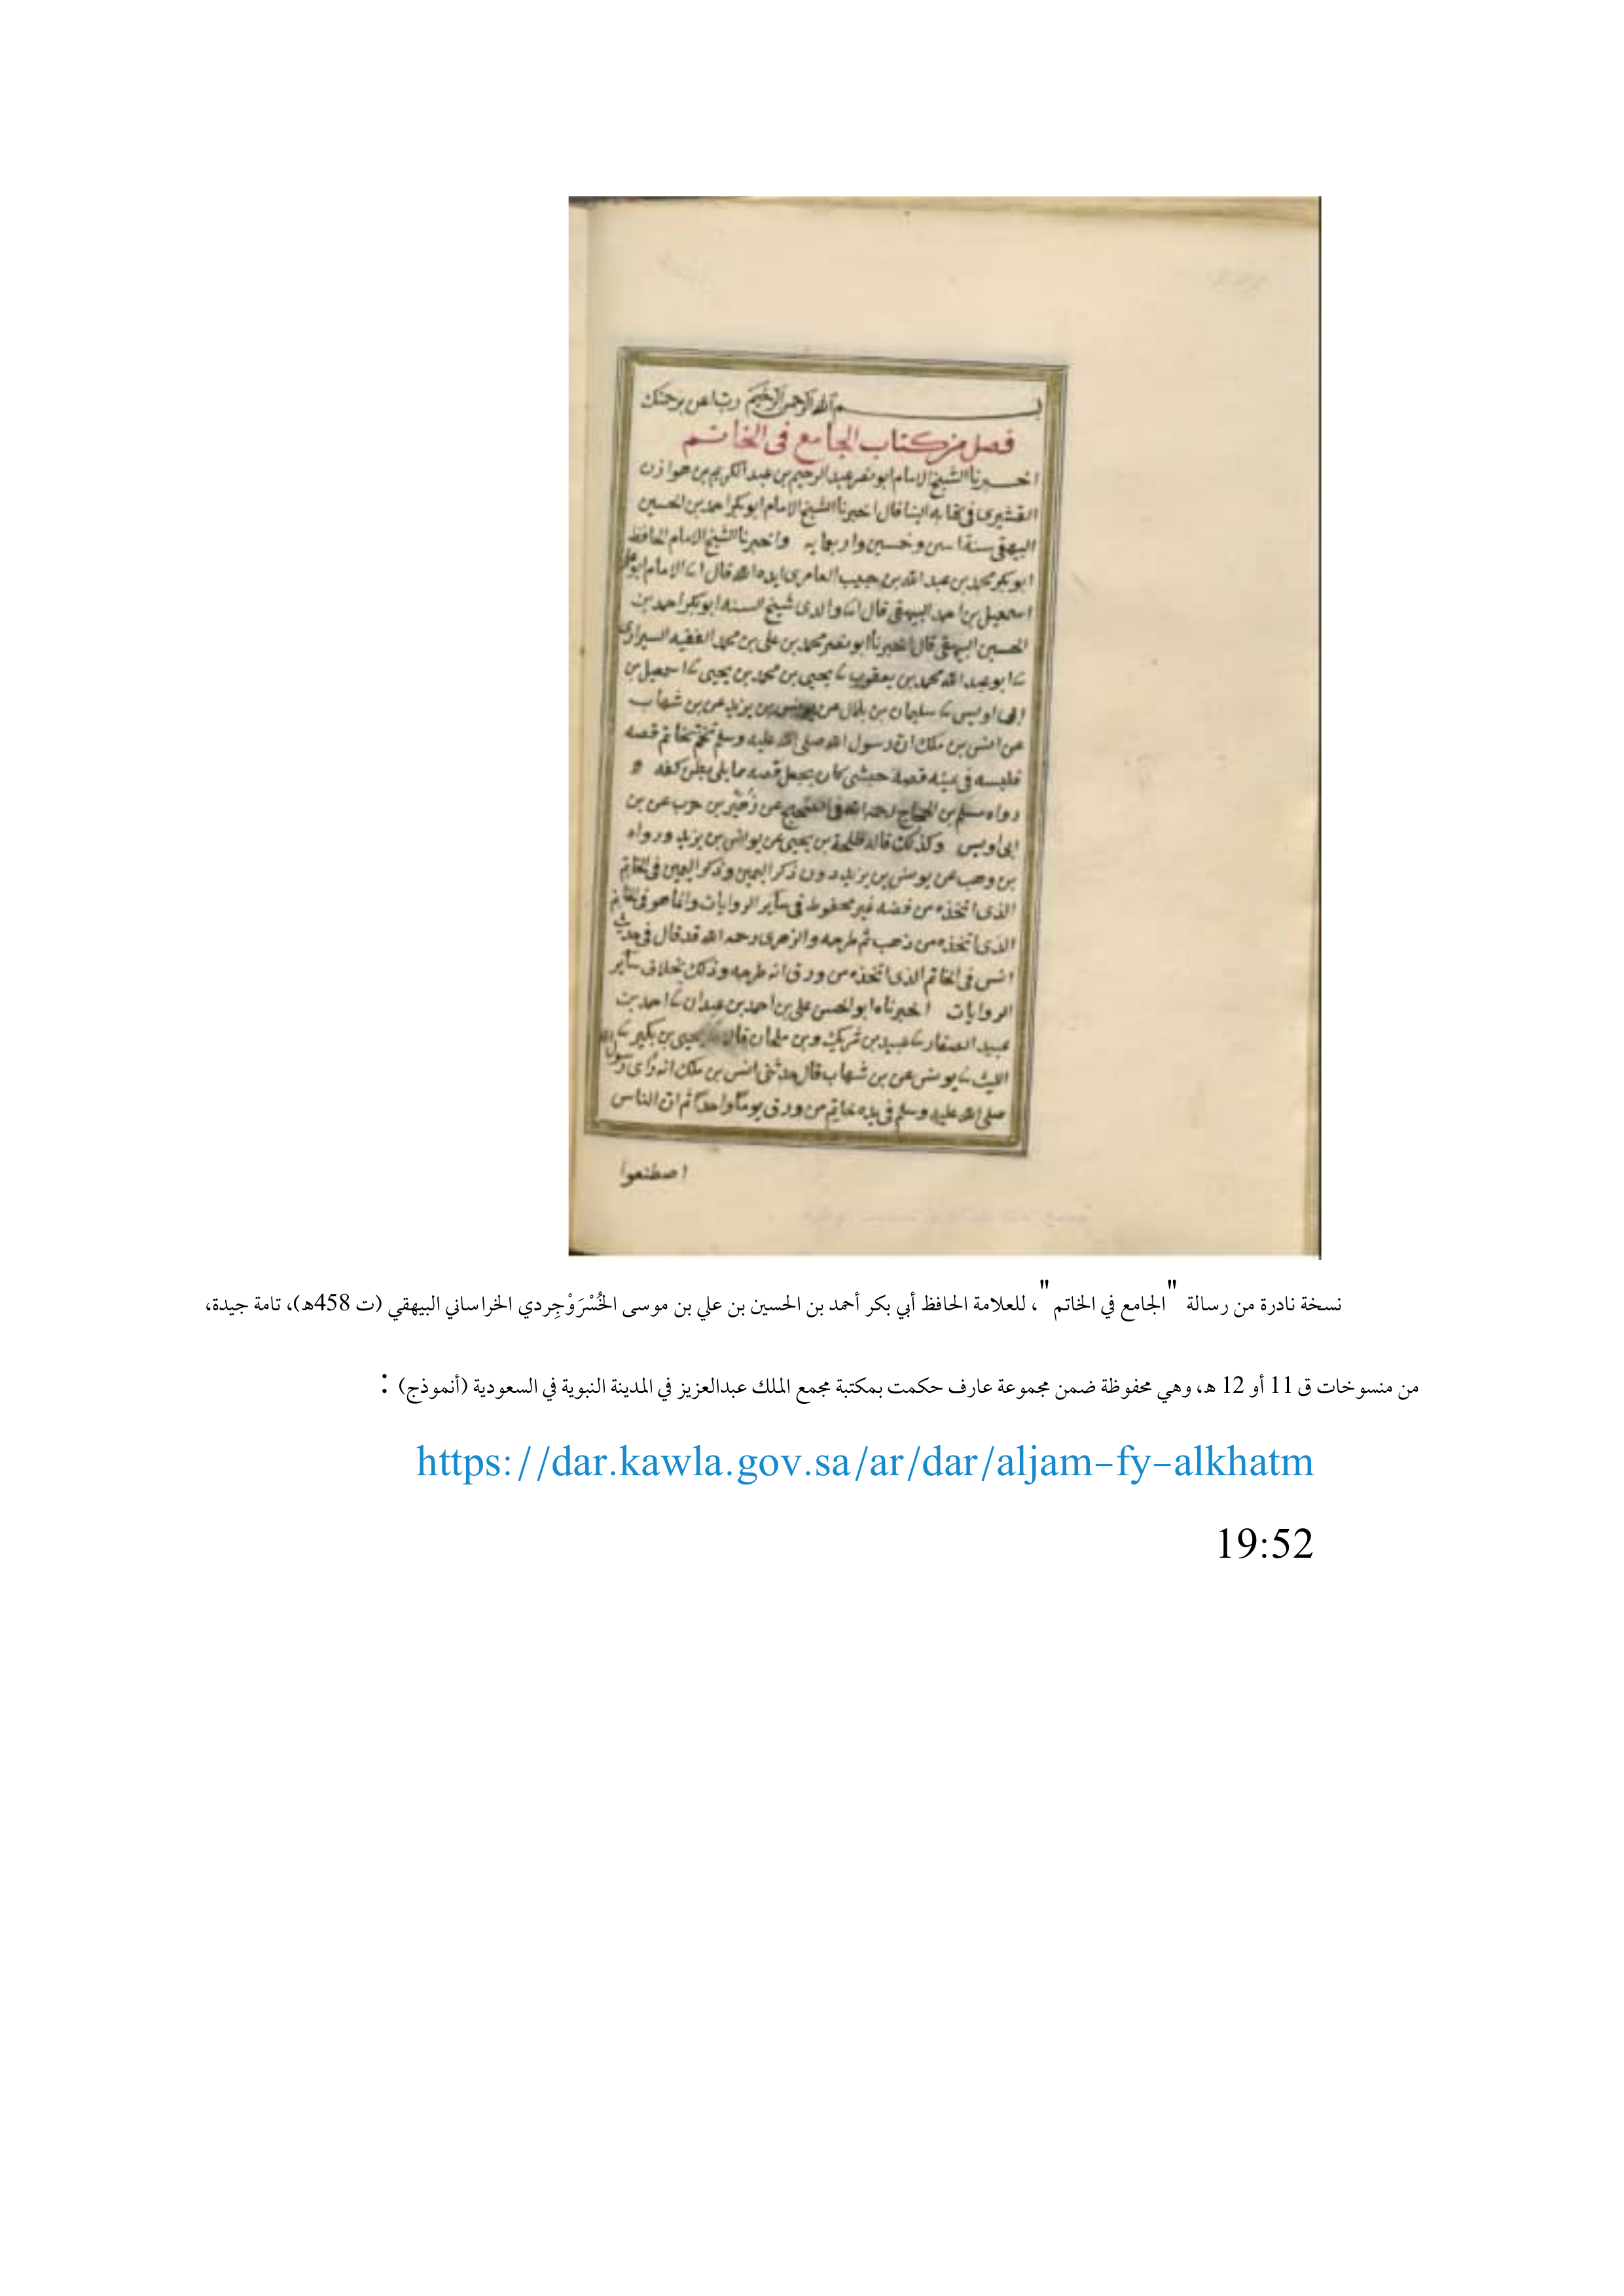 بسم الله الرحمن الرحيم رب اعن برحمتك
فصل من كتاب الجامع في الخاتم
اخبرنا الشيخ الامام ابو نصر عبد الرحيم بن عبد الكريم بن هوازن
القشيرى فى كتابه الينا قال اخبرنا الشيخ الامام ابو بكر احمد بن الحسين
البيهقى سنة وخمسين واربعمايه واخبرنا الشيخ الامام الحافظ
ابو بكر محمد بن عبد الله بن حبيب العامرى ايده الله قال انا الامام ابو على
اسمعيل بن احمد البيهقى قال انا والدى شيخ السنه ابو بكر احمد بن
الحسين البيهقى قال اخبرنا ابو نصر محمد بن على بن محمد الفقيه السيرازى
نا ابو عبد الله محمد بن يعقوب نا يحيى بن محمد بن يحيى نا اسمعيل بن
ابى اويس نا سليمان بن بلال عن يونس بن يزيد عن بن شهاب
عن انس بن ملك ان رسول الله صلى الله عليه وسلم تختم بخاتم فصه
فلبسه فى يمينه فصه حبشى كان يجعل فصه مما يلى بطن كفه
رواه مسلم بن الحجاج رحمه الله فى الصحيح عن زهير بن حرب عن بن
ابى اويس وكذلك قاله طلحة بن يحيى عن يونس بن يزيد ورواه
بن وهب عن يونس بن يزيد دون ذكر اليمين وذكر اليمين فى الخاتم
الذى اتخذه من فضه غير محفوظ فى سآير الروايات وانما هو فى الخاتم
الذى اتخذه من ذهب ثم طرحه والزهرى رحمه الله قد قال فى حديث
انس فى الخاتم الذى اتخذه من ورق انه طرحه وذلك بخلاف سآير
الروايات اخبرناه ابو الحسن على بن احمد بن عبدان نا احمد بن
عبيد الصفار نا عبيد بن شريك وبن ملحان قالا نا يحيى بن بكير نا
الليث نا يونس عن بن شهاب قال حدثنى انس بن ملك انه رأى رسول الله
صلى الله عليه وسلم فى يده خاتم من ورق يوماً واحداً ثم ان الناس
اصطنعوا
نسخة نادرة من رسالة "الجامع في الخاتم"، للعلامة الحافظ أبي بكر أحمد بن الحسين بن علي بن موسى الخُسْرَوْجِردي الخراساني البيهقي (ت 458هـ)، تامة جيدة،
من منسوخات ق 11 أو 12 هـ، وهي محفوظة ضمن مجموعة عارف حكمت بمكتبة مجمع الملك عبدالعزيز في المدينة النبوية في السعودية (أنموذج) :
https://dar.kawla.gov.sa/ar/dar/aljam-fy-alkhatm
19:52